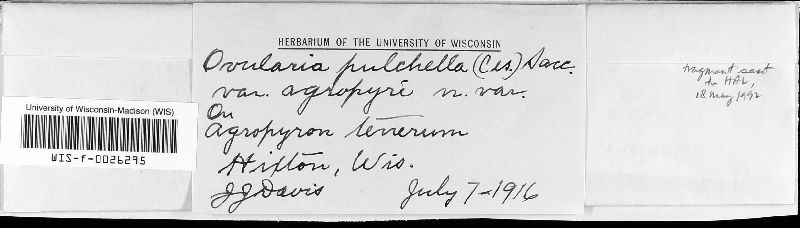 HERBARIUM OF THE UNIVERSITY OF WISCONSIN
Ovularia pulchella (Ces.) Sacc.
var. agropyri n. var.
On
Agropyron tenerum
Hixton, Wis.
JJ Davis July 7-1916
University of Wisconsin-Madison (WIS)
WIS-f-0026295
fragment sent
to HAL,
18 May 1992